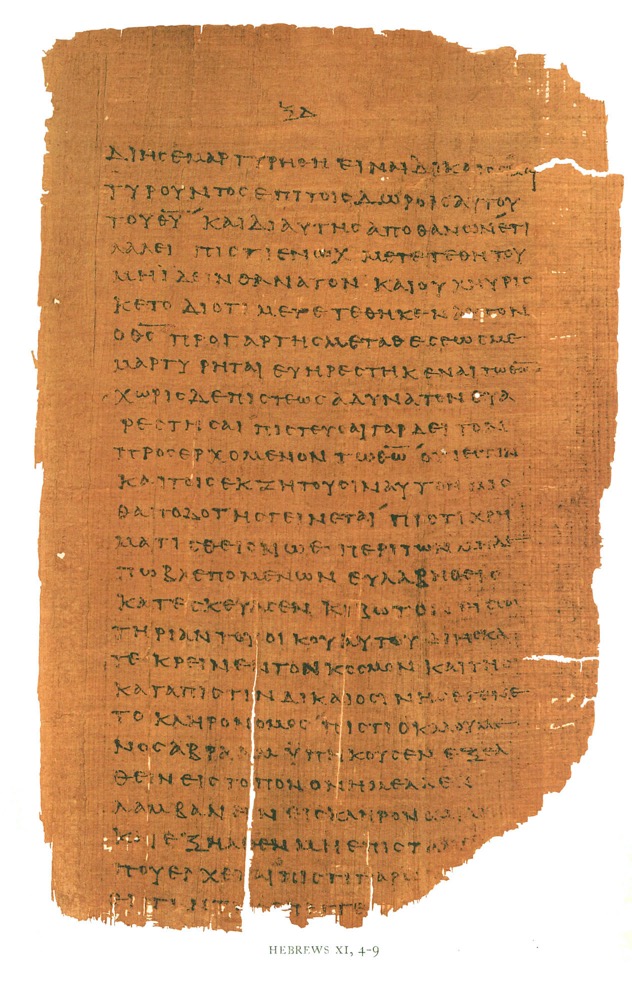 ΞΔ
ΔΙΗϹΕΜΑΡΤΥΡΗΘΗ ΕΙΝΑΙ ΔΙΚΑΙΟϹ ΜΑΡ
ΤΥΡΟΥΝΤΟϹ ΕΠΙ ΤΟΙϹ ΔΩΡΟΙϹ ΑΥΤΟΥ
ΤΟΥ Θ̅Υ̅ ΚΑΙ ΔΙ ΑΥΤΗϹ ΑΠΟΘΑΝΩΝ ΕΤΙ
ΛΑΛΕΙ ΠΙϹΤΙ ΕΝΩΧ ΜΕΤΕΤΕΘΗ ΤΟΥ
ΜΗ ΙΔΕΙΝ ΘΑΝΑΤΟΝ ΚΑΙ ΟΥΧ ΗΥΡΙϹ
ΚΕΤΟ ΔΙΟΤΙ ΜΕΤΕΤΕΘΗΚΕΝ ΑΥΤΟΝ
Ο Θ̅Ϲ̅ ΠΡΟ ΓΑΡ ΤΗϹ ΜΕΤΑΘΕϹΕΩϹ ΜΕ
ΜΑΡΤΥΡΗΤΑΙ ΕΥΗΡΕϹΤΗΚΕΝΑΙ ΤΩ Θ̅Ω̅
ΧΩΡΙϹ ΔΕ ΠΙϹΤΕΩϹ ΑΔΥΝΑΤΟΝ ΕΥΑ
ΡΕϹΤΗϹΑΙ ΠΙϹΤΕΥϹΑΙ ΓΑΡ ΔΕΙ ΤΟΝ
ΠΡΟϹΕΡΧΟΜΕΝΟΝ ΤΩ Θ̅Ω̅ ΟΤΙ ΕϹΤΙΝ
ΚΑΙ ΤΟΙϹ ΕΚΖΗΤΟΥϹΙΝ ΑΥΤΟΝ ΜΙϹ
ΘΑΠΟΔΟΤΗϹ ΓΕΙΝΕΤΑΙ ΠΙϹΤΙ ΧΡΗ
ΜΑΤΙϹΘΕΙϹ ΝΩΕ ΠΕΡΙ ΤΩΝ ΜΗΔΕ
ΠΩ ΒΛΕΠΟΜΕΝΩΝ ΕΥΛΑΒΗΘΕΙϹ
ΚΑΤΕϹΚΕΥΑϹΕΝ ΚΙΒΩΤΟΝ ΕΙϹ ϹΩ
ΤΗΡΙΑΝ ΤΟΥ ΟΙΚΟΥ ΑΥΤΟΥ ΔΙ ΗϹ ΚΑ
ΤΕΚΡΕΙΝΕΝ ΤΟΝ ΚΟϹΜΟΝ ΚΑΙ ΤΗϹ
ΚΑΤΑ ΠΙϹΤΙΝ ΔΙΚΑΙΟϹΥΝΗϹ ΕΓΕΝΕ
ΤΟ ΚΛΗΡΟΝΟΜΟϹ ΠΙϹΤΙ Ο ΚΑΛΟΥΜΕ
ΝΟϹ ΑΒΡΑΑΜ ΥΠΗΚΟΥϹΕΝ ΕΞΕΛ
ΘΕΙΝ ΕΙϹ ΤΟΠΟΝ ΟΝ ΗΜΕΛΛΕΝ
ΛΑΜΒΑΝΕΙΝ ΕΙϹ ΚΛΗΡΟΝΟΜ
ΚΑΙ ΕΞΗΛΘΕΝ ΜΗ ΕΠΙϹΤΑ
ΠΟΥ ΕΡΧΕΤΑΙ ΠΙϹΤΙ ΠΑΡΩ
HEBREWS XI, 4-9